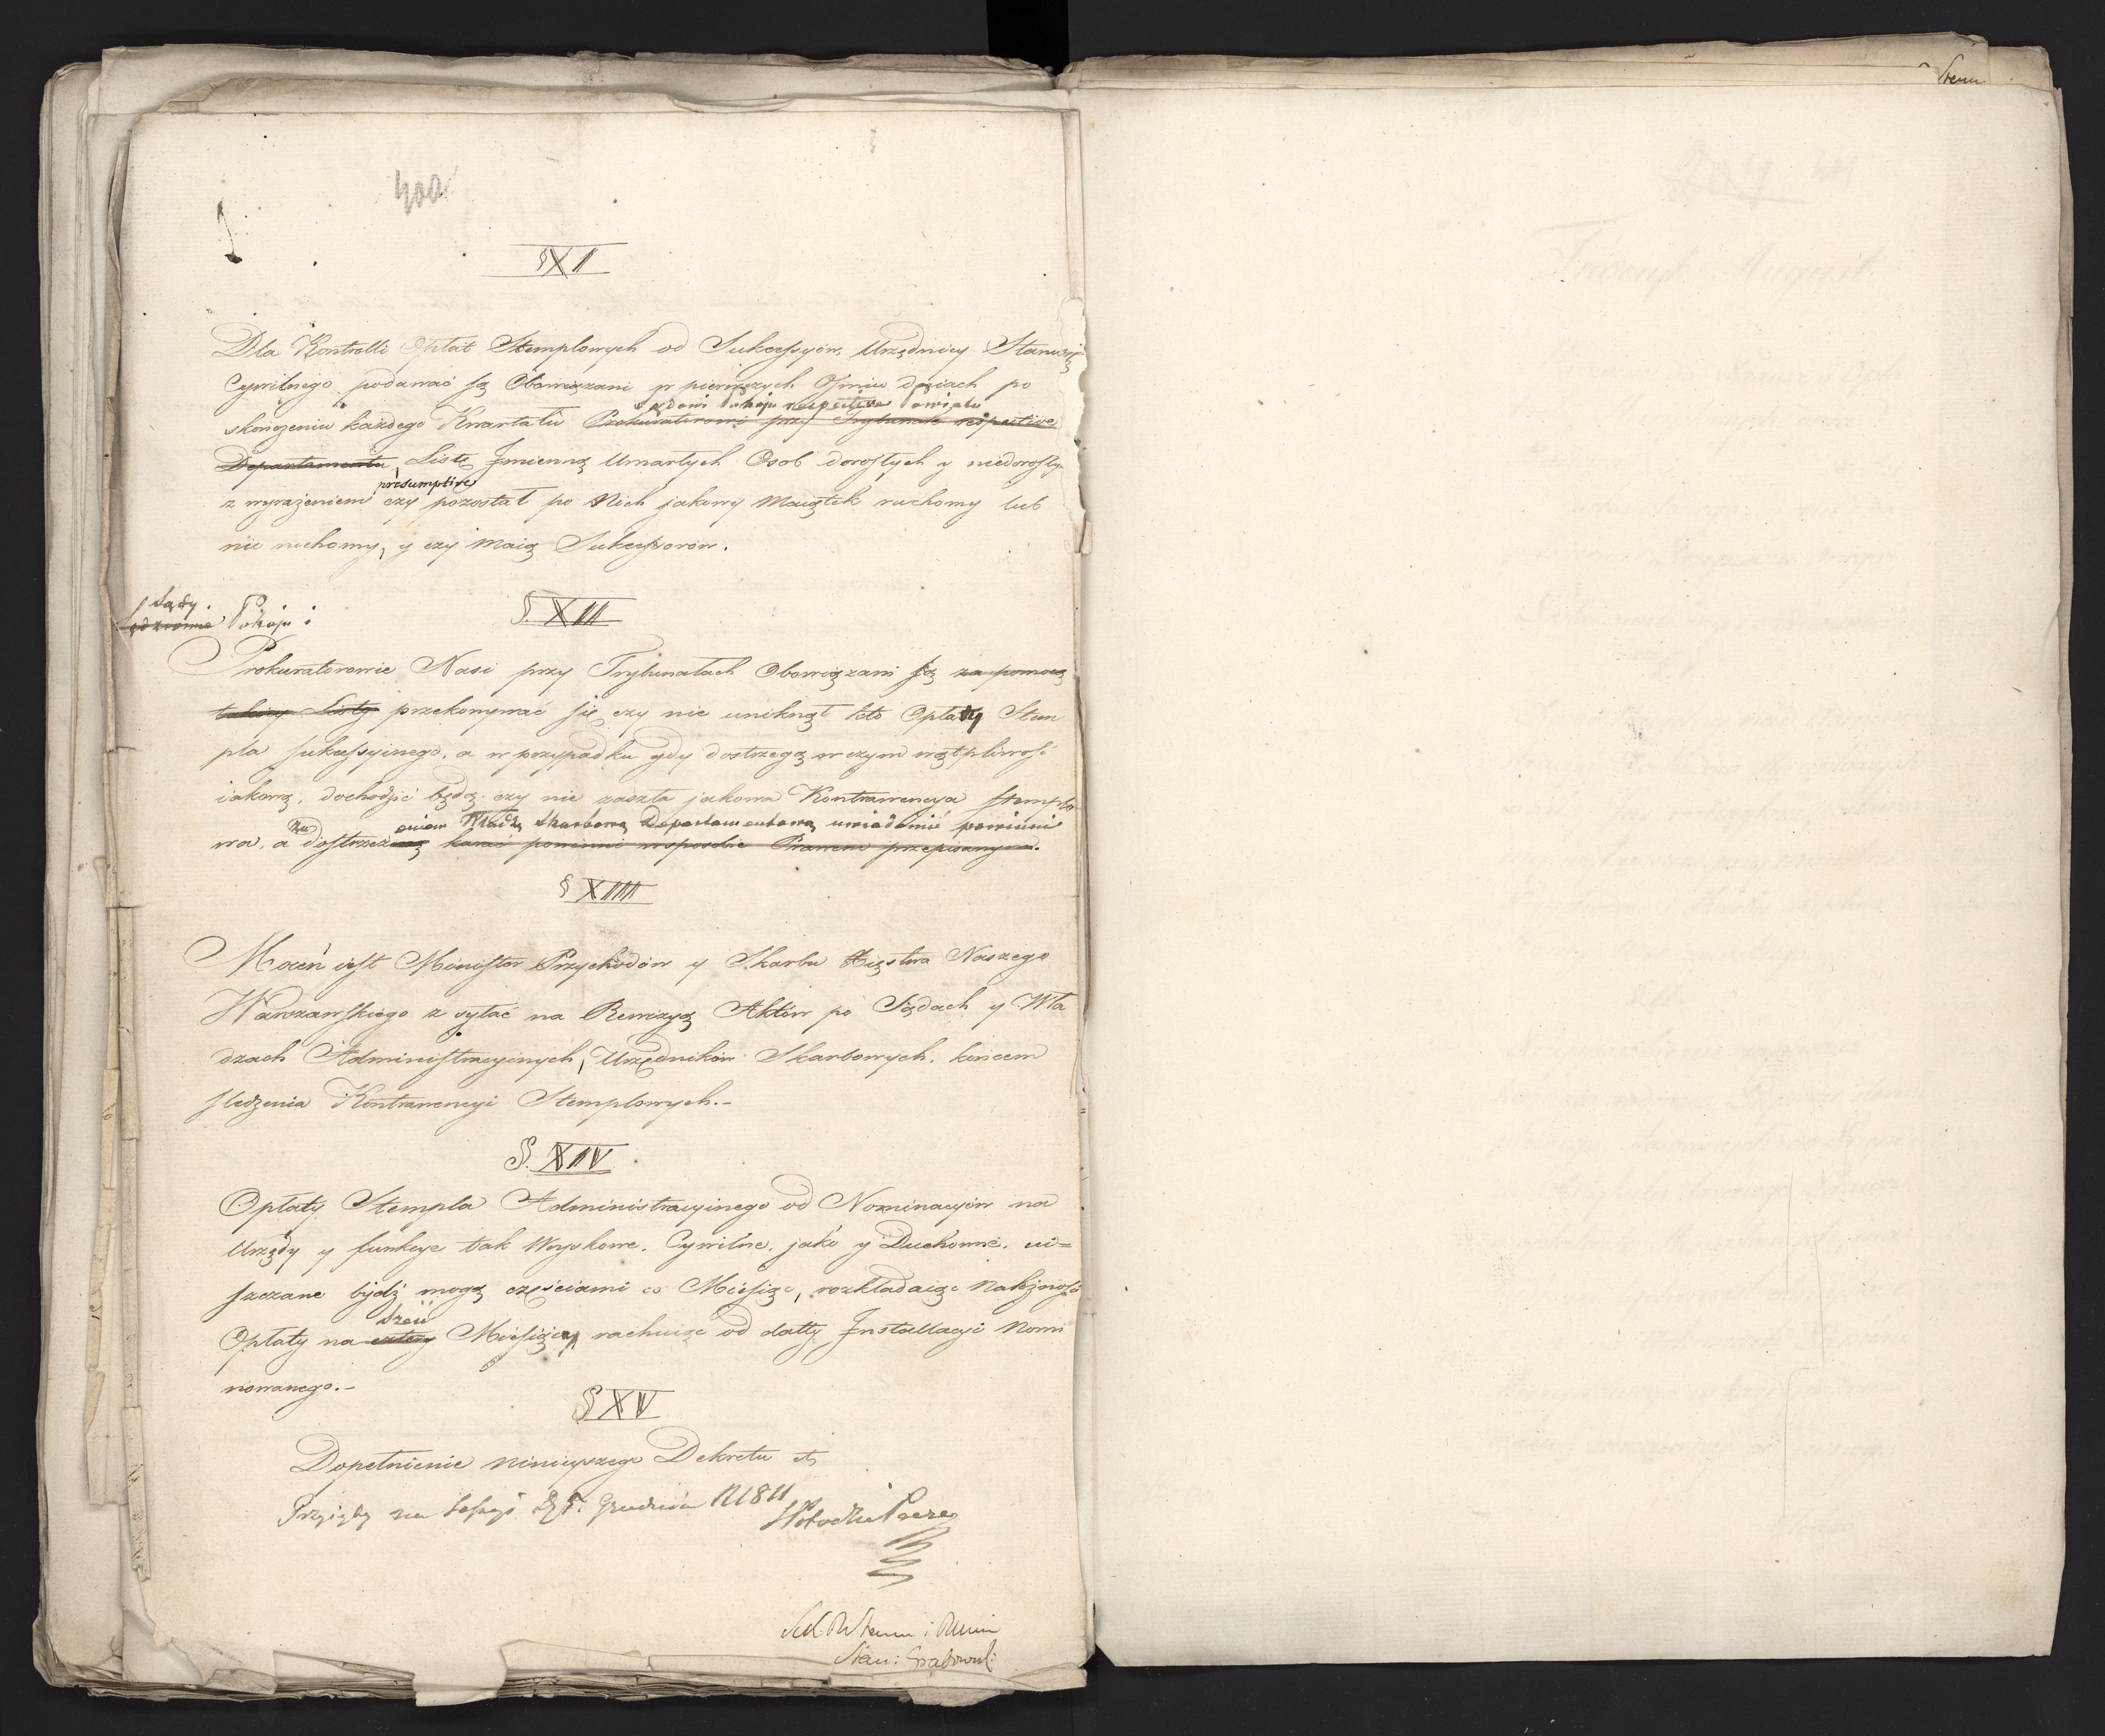 400
§ XI
Dla Kontrolli Opłat Stemplowych od Sukcessyów, Urzędnicy Stanu
Cywilnego podawać są Obowiązani w pierwszych Ośmiu dniach po
Sądowi Pokoju respective Powiatu
skończeniu każdego Kwartału Prokuratorowi przy Trybunale respective
Departamentu, Listę Jmienną Umarłych Osob dorosłych y niedorosłych
presumptive
z wyrażeniem czy pozostał po Nich jakowy Maiątek ruchomy lub
nie ruchomy, y czy Maią Sukcessorów.
Sądy Pokoju i
§. XII
Prokuratorowie Nasi przy Trybunałach Obowiązani są za pomocą
takiey Listy przekonywać się czy nie uniknął kto Opłaty Stem
pla sukcessyinego, a w przypadku gdy dostrzegą w czym wątpliwość
iakową, dochodzić będą czy nie zaszła jakowa Kontrawencya stemplo
za eniem Władzę Skarbową Departamentową uwiadomić powinni
wa, a dostrzeżoną karać powinni w sposobie Prawem przepisanym.
§ XIII
Mocen iest Minister Przychodów y Skarbu Xięstwa Naszego
Warszawskiego zsyłać na Rewizyą Aktów po Sądach y Wła
dzach Administracyinych, Urzędników Skarbowych, końcem
sledzenia Kontrawencyi Stemplowych.-
§. XIV
Opłaty Stempla Administracyinego od Nominacyów na
Urzędy y funkcye tak Woyskowe, Cywilne, jako y Duchowne, ui=
szczane bydź mogą częściami co Miesiąc, rozkładaiąc Należność
sześć
Opłaty na cztery Miesięcy rachuiąc od datty Jnstallacyi Nomi
nowanego.-
§ XV
Dopełnienie ninieyszego Dekretu etc
Przyięty na Sessyi Grudnia 1811
Potocki Prezes
Stan: Grabowski